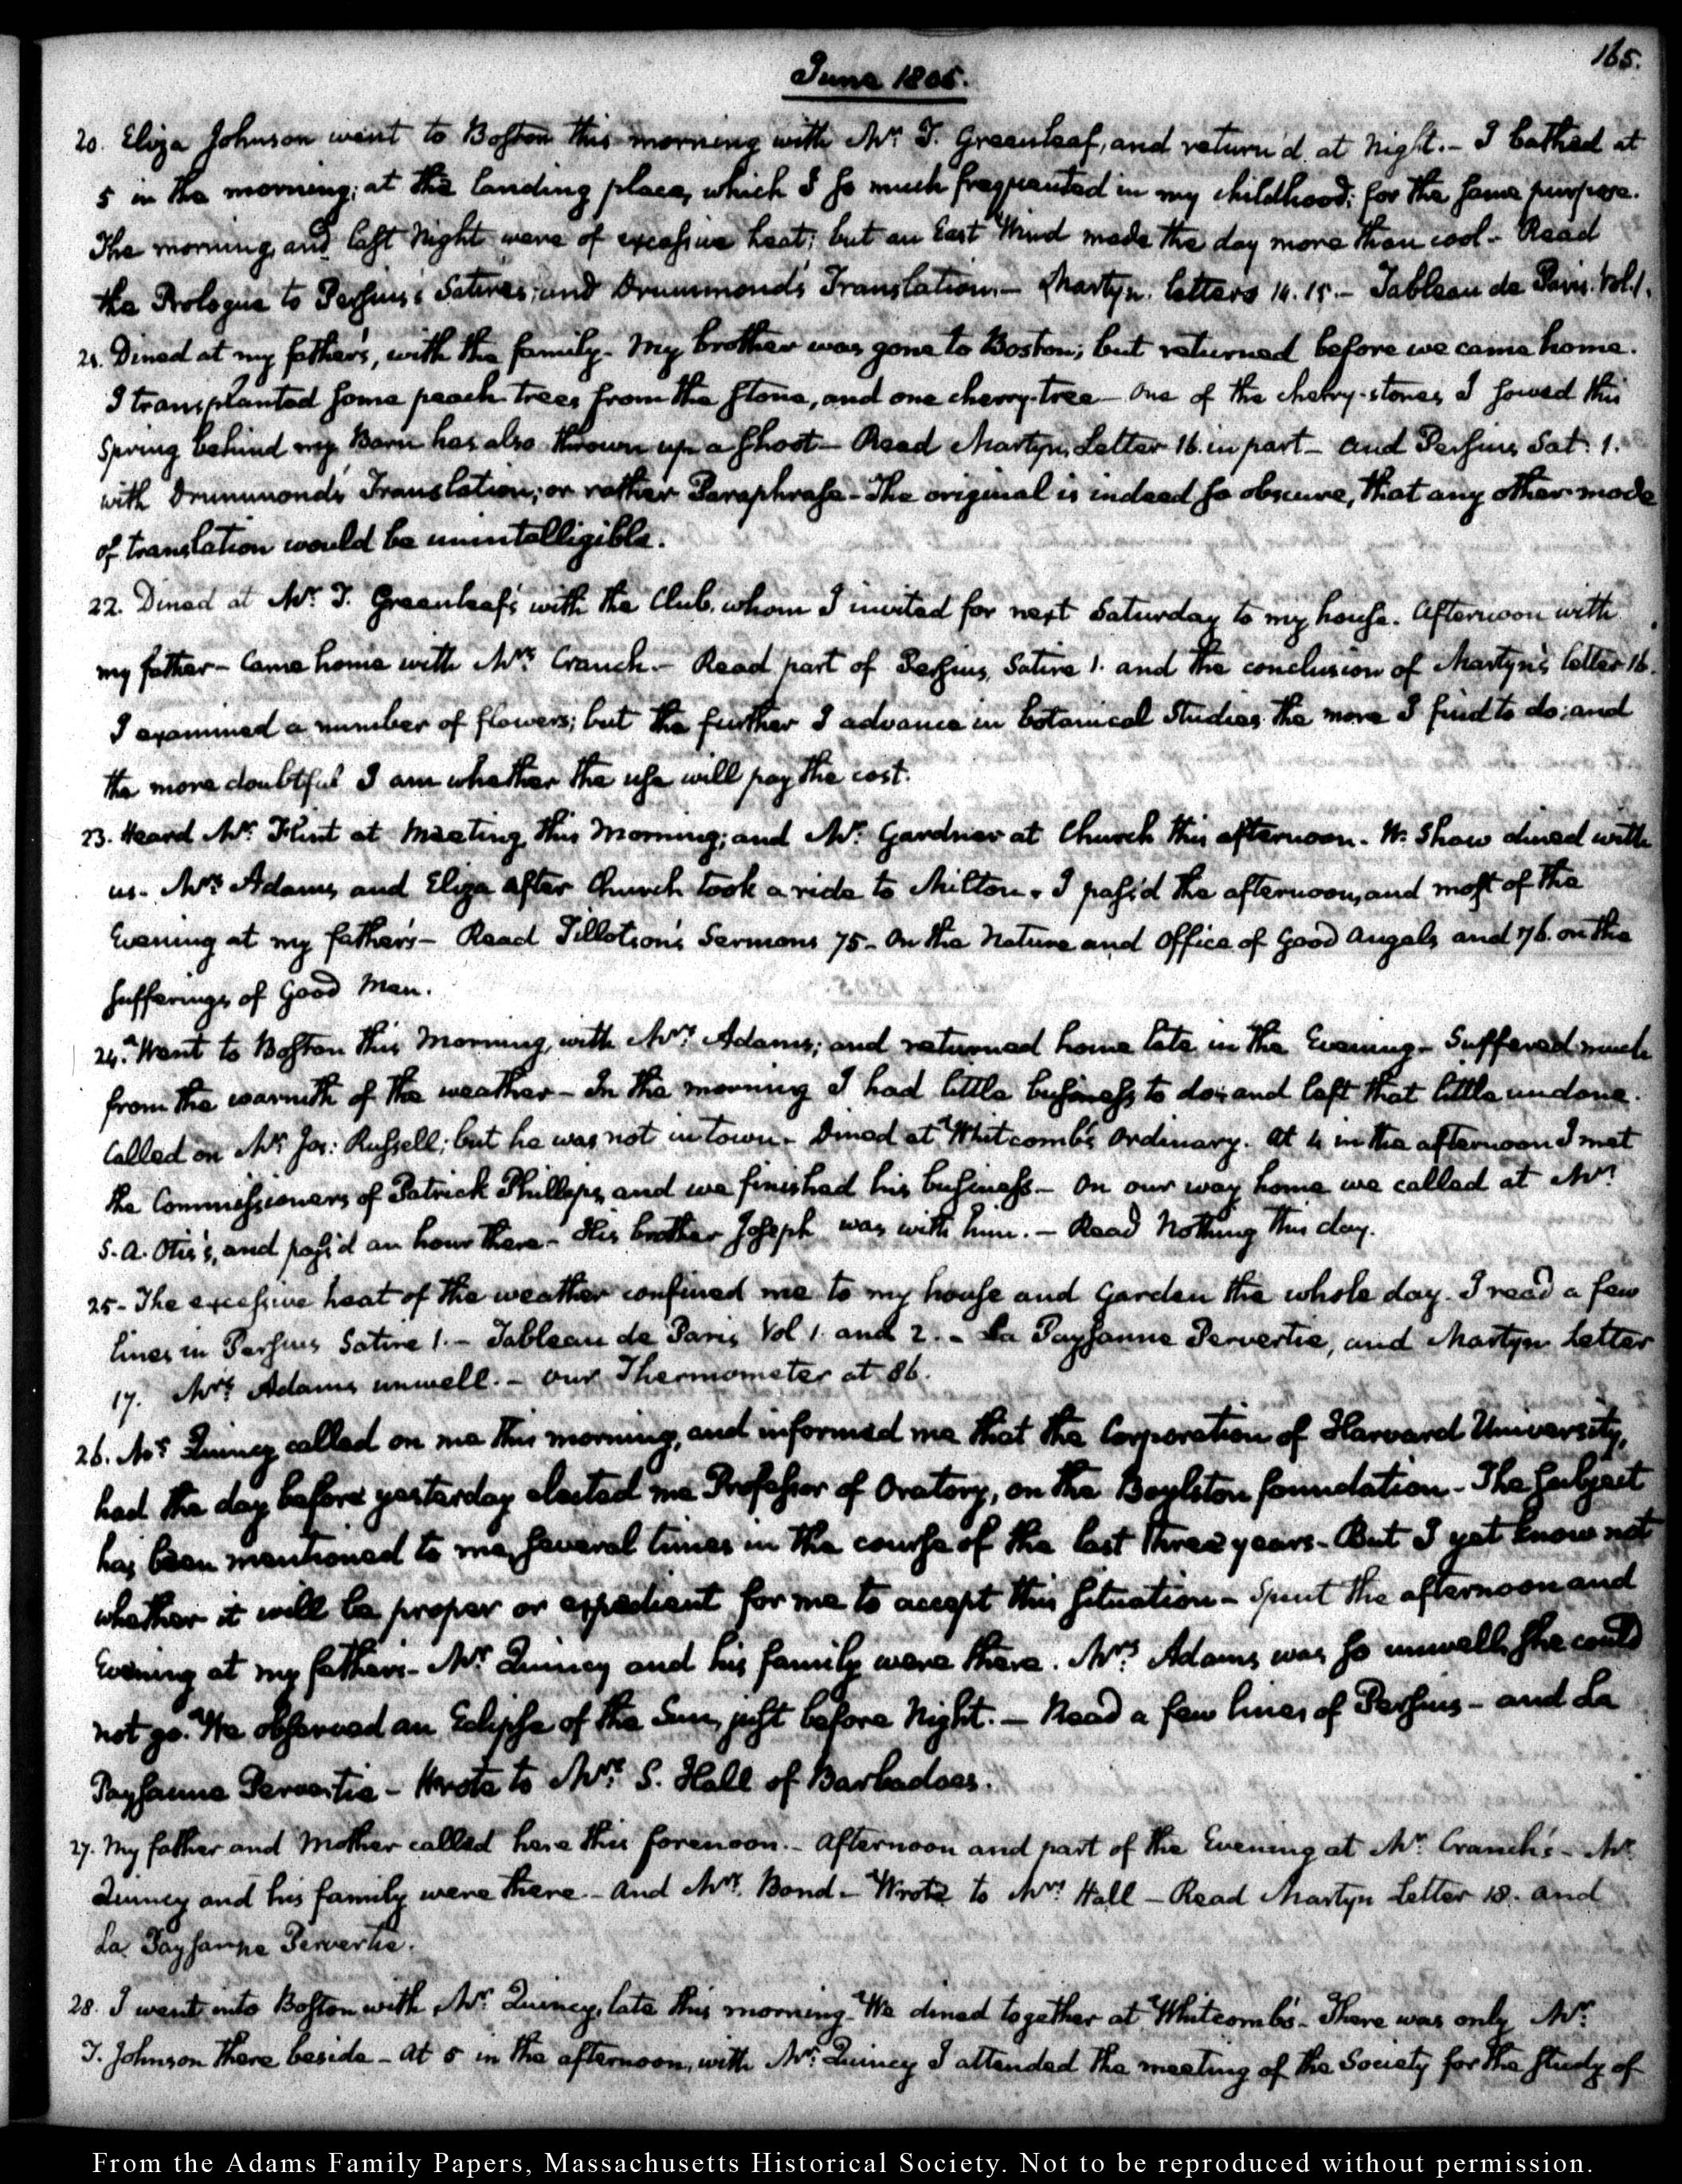 165.
June 1805.
20. Eliza Johnson went to Boston this morning with Mr. T. Greenleaf, and return'd at Night. - I bathed at
5 in the morning; at the landing place, which I so much frequented in my childhood; for the same purpose.
The morning, and last Night were of excessive heat; but an East Wind made the day more than cool - Read
the Prologue to Persius's Satires; and Drummond's Translation. - Martyn. letters 14. 15. - Tableau de Paris. Vol. 1.
21. Dined at my father's, with the family - My brother was gone to Boston; but returned before we came home.
I transplanted some peach trees from the stone, and one cherry-tree - One of the cherry-stones I sowed this
Spring behind my Barn has also thrown up a shoot - Read Martyn, Letter 16. in part - and Persius Sat: 1.
with Drummond's Translation; or rather Paraphrase - The original is indeed so obscure, that any other mode
of translation would be unintelligible.
22. Dined at Mr. T. Greenleaf's with the Club, whom I invited for next Saturday to my house. Afternoon with
my father - Came home with Mrs. Cranch. - Read part of Persius, Satire 1. and the conclusion of Martyn's letter 16.
I examined a number of flowers; but the further I advance in botanical Studies the more I find to do; and
the more doubtful I am whether the use will pay the cost.
23. Heard Mr. Flint at Meeting this Morning; and Mr. Gardner at Church this afternoon. W. Shaw dined with
us. Mrs. Adams and Eliza after Church took a ride to Milton. I pass'd the afternoon, and most of the
Evening at my father's - Read Tillotson's Sermons 75 - On the Nature and Office of Good Angels, and 76. on the
sufferings of Good Men.
24. Went to Boston this Morning, with Mrs. Adams; and returned home late in the Evening - Suffered much
from the warmth of the weather - In the morning I had little business to do; and left that little undone.
Called on Mr. Jos: Russell; but he was not in town - Dined at Whitcomb's Ordinary. At 4 in the afternoon I met
the Commissioners of Patrick Phillips, and we finished his business - On our way home we called at Mr.
S. A. Otis's, and pass'd an hour there - His brother Joseph was with him. - Read Nothing this day.
25 - The excessive heat of the weather confined me to my house and Garden the whole day. I read a few
lines in Persius Satire 1. - Tableau de Paris Vol 1. and 2. - La Paysanne Pervertie, and Martyn Letter
17. Mrs. Adams unwell. - our Thermometer at 86.
26. Mr. Quincy called on me this morning, and informed me that the Corporation of Harvard University,
had the day before yesterday elected me Professor of Oratory, on the Boylston foundation - The subject
has been mentioned to me, several times in the course of the last three years - But I yet know not
whether it will be proper or expedient for me to accept this situation - Spent the afternoon and
Evening at my father's - Mr. Quincy and his family were there. Mrs. Adams was so unwell, she could
not go. We observed an Eclipse of the Sun, just before Night. - Read a few lines of Persius - and La
Paysanne Pervertie - Wrote to Mr. S. Hall of Barbadoes.
27. My father and Mother called here this forenoon. - Afternoon and part of the Evening at Mr. Cranch's - Mr.
Quincy and his family were there - and Mrs. Bond - Wrote to Mrs. Hall - Read Martyn Letter 18. and
La Paysanne Pervertie.
28. I went into Boston with Mr. Quincy, late this morning - We dined together at Whitcomb's - There was only Mr.
T. Johnson there beside - At 5 in the afternoon, with Mr. Quincy I attended the meeting of the Society for the study of
From the Adams Family Papers, Massachusetts Historical Society. Not to be reproduced without permission.